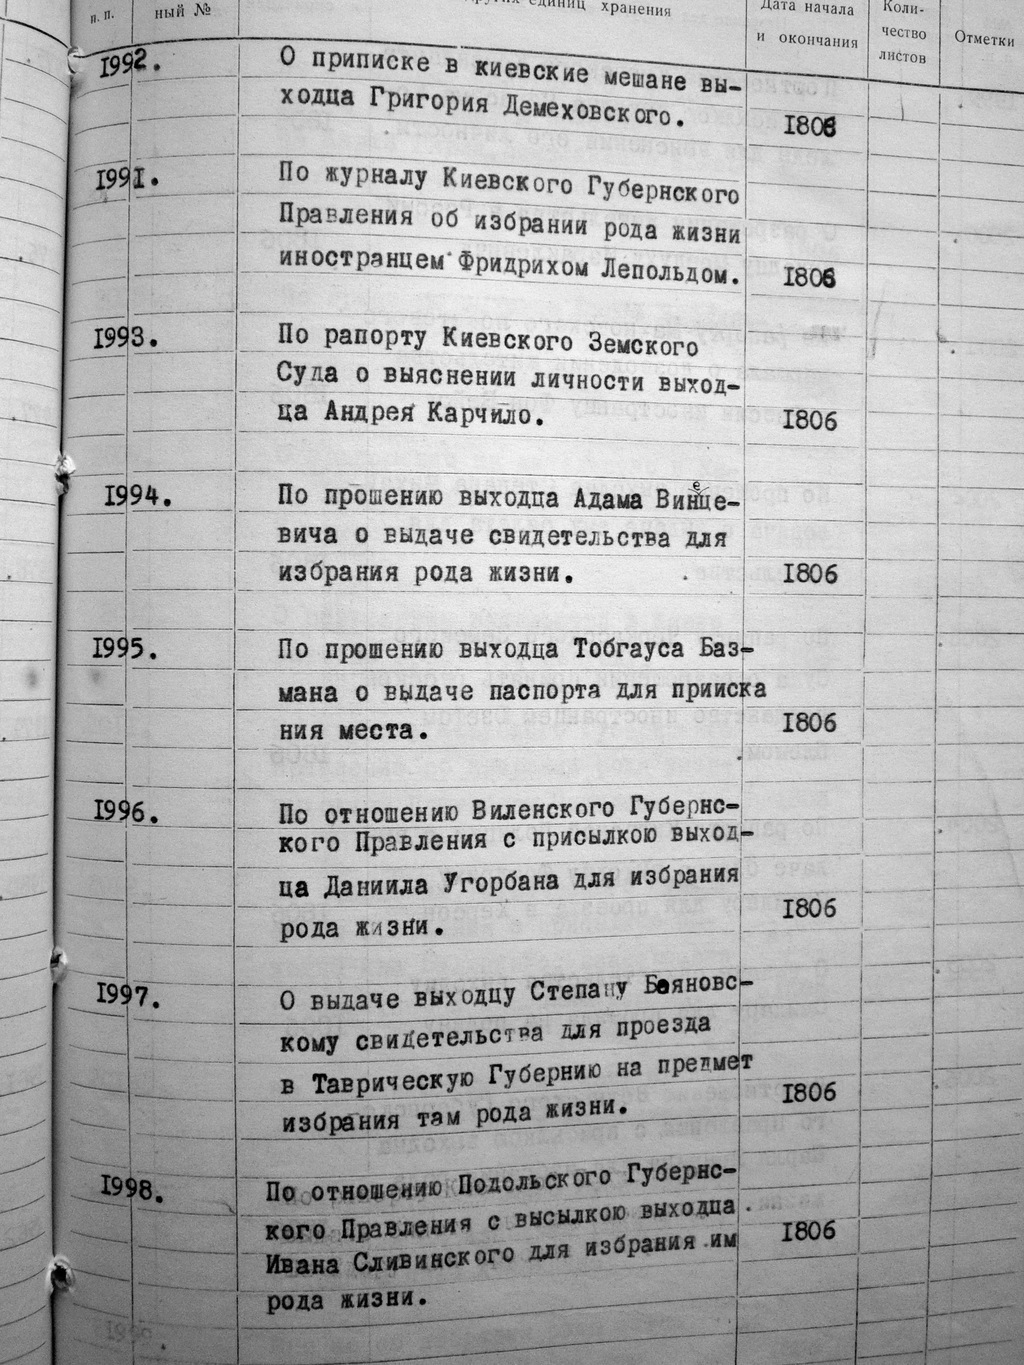 п. п.
ный №
других единиц хранения
Дата начала
и окончания
Коли-
чество
листов
Отметки
1992.
О приписке в киевские мещане вы-
ходца Григория Демеховского.
1806
1991.
По журналу Киевского Губернского
Правления об избрании рода жизни
иностранцем Фридрихом Лепольдом.
1806
1993.
По рапорту Киевского Земского
Суда о выяснении личности выход-
ца Андрея Карчило.
1806
1994.
По прошению выходца Адама Винце-
вича о выдаче свидетельства для
избрания рода жизни.
1806
1995.
По прошению выходца Тобгауса Баз-
мана о выдаче паспорта для прииска
ния места.
1806
1996.
По отношению Виленского Губернс-
кого Правления с присылкою выход-
ца Даниила Угорбана для избрания
рода жизни.
1806
1997.
О выдаче выходцу Степану Баяновс-
кому свидетельства для проезда
в Таврическую Губернию на предмет
избрания там рода жизни.
1806
1998.
По отношению Подольского Губернс-
кого Правления с высылкою выходца
Ивана Сливинского для избрания им
рода жизни.
1806